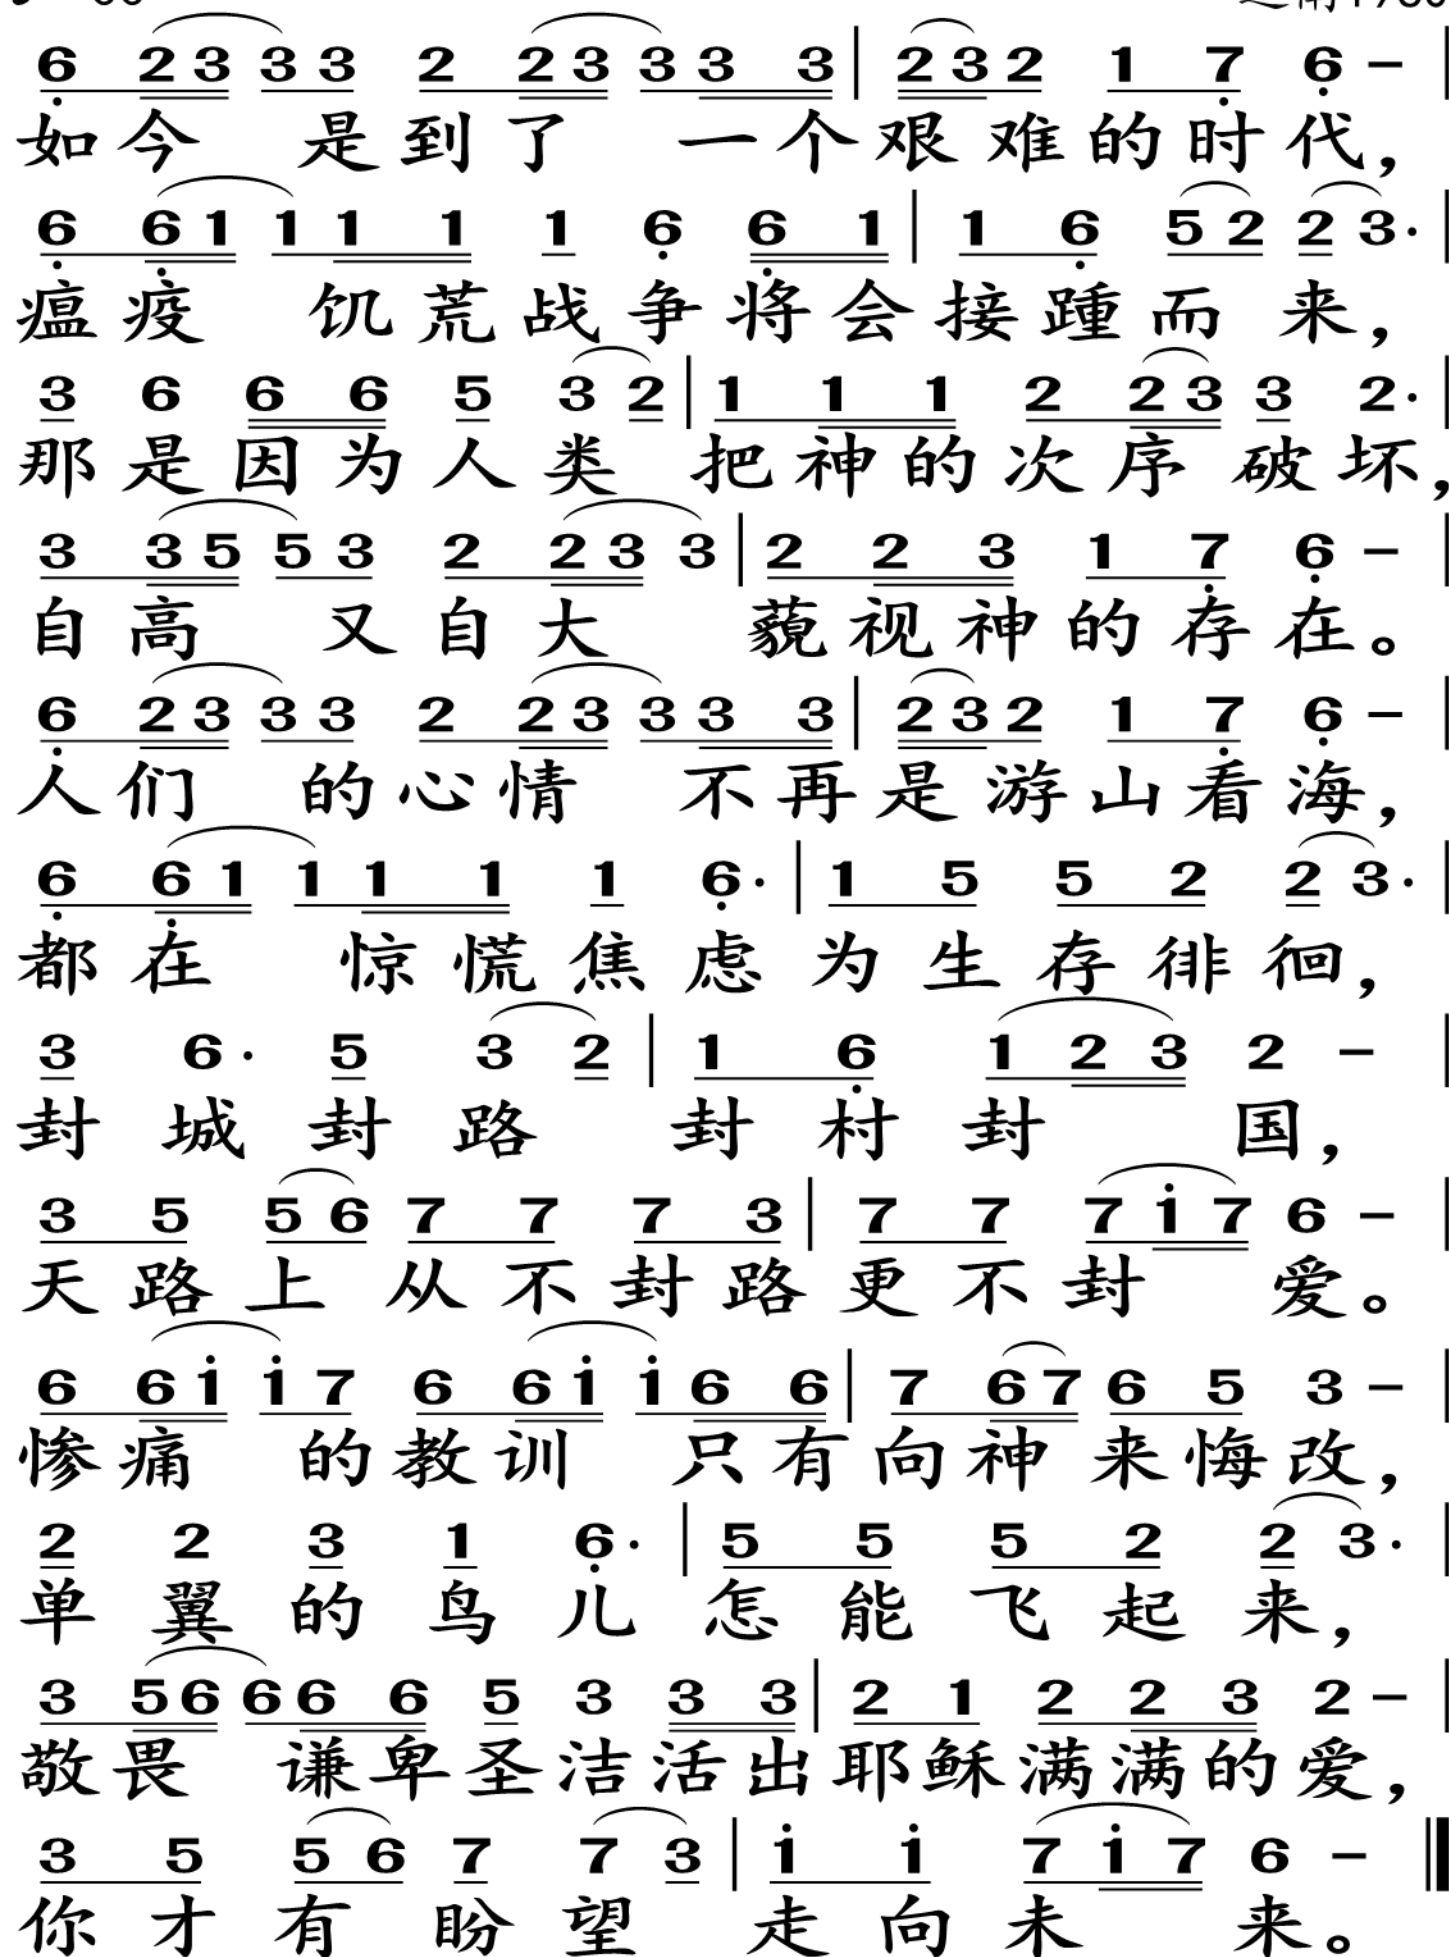 6 2 3 3 3 2 2 3 3 3 3 | 2 3 2 1 7 6 – |
如今 是到了 一个艰难的时代，
6 6 1 1 1 1 1 6 6 1 | 1 6 5 2 2 3· |
瘟疫 饥荒战争将会接踵而来，
3 6 6 6 5 3 2 | 1 1 1 2 2 3 3 2· |
那是因为人类 把神的次序破坏，
3 3 5 5 3 2 2 3 3 | 2 2 3 1 7 6 – |
自高 又自大 藐视神的存在。
6 2 3 3 3 2 2 3 3 3 3 | 2 3 2 1 7 6 – |
人们 的心情 不再是游山看海，
6 6 1 1 1 1 1 6· | 1 5 5 2 2 3· |
都在 惊慌焦虑为生存徘徊，
3 6· 5 3 2 | 1 6 1 2 3 2 – |
封城封路 封村封 国，
3 5 5 6 7 7 7 3 | 7 7 7 i 7 6 – |
天路上从不封路更不封 爱。
6 6 i i 7 6 6 i i 6 6 | 7 6 7 6 5 3 – |
惨痛 的教训 只有向神来悔改，
2 2 3 1 6· | 5 5 5 2 2 3· |
单翼的鸟儿怎能飞起来，
3 5 6 6 6 6 5 3 3 3 | 2 1 2 2 3 2 – |
敬畏 谦卑圣洁活出耶稣满满的爱，
3 5 5 6 7 7 3 | i i 7 i 7 6 – ‖
你才有盼望 走向未 来。